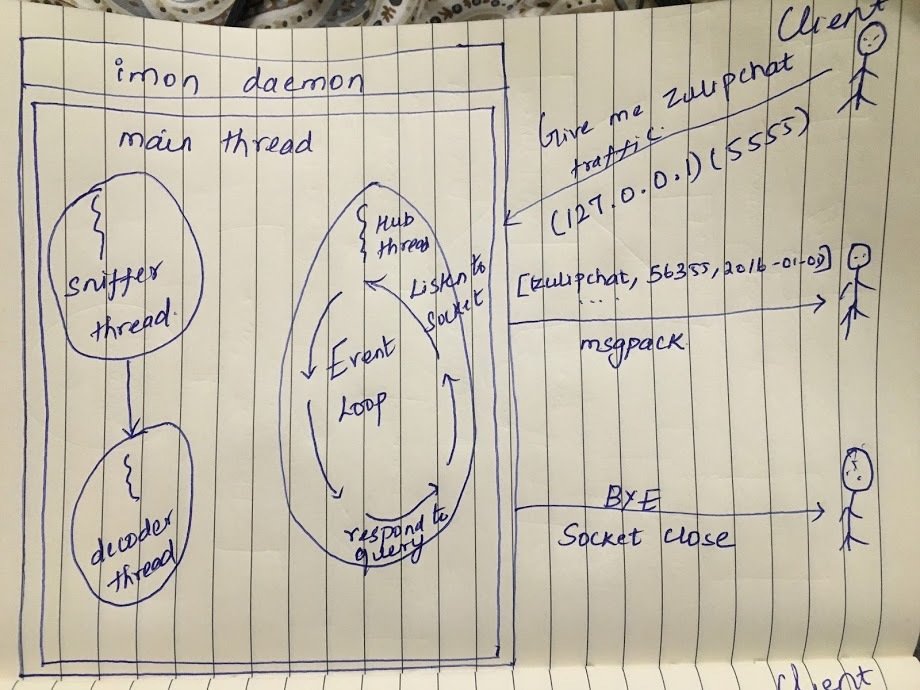 imon daemon
main thread
Sniffer
thread.
decoder
thread
Hub
thread
Listen to
Socket
Event
Loop
respond to
query
Client
Give me zulipchat
traffic.
(127.0.0.1) (5555)
[zulipchat, 56355, 2016-01-09]
....
msgpack
BYE
Socket close
Client